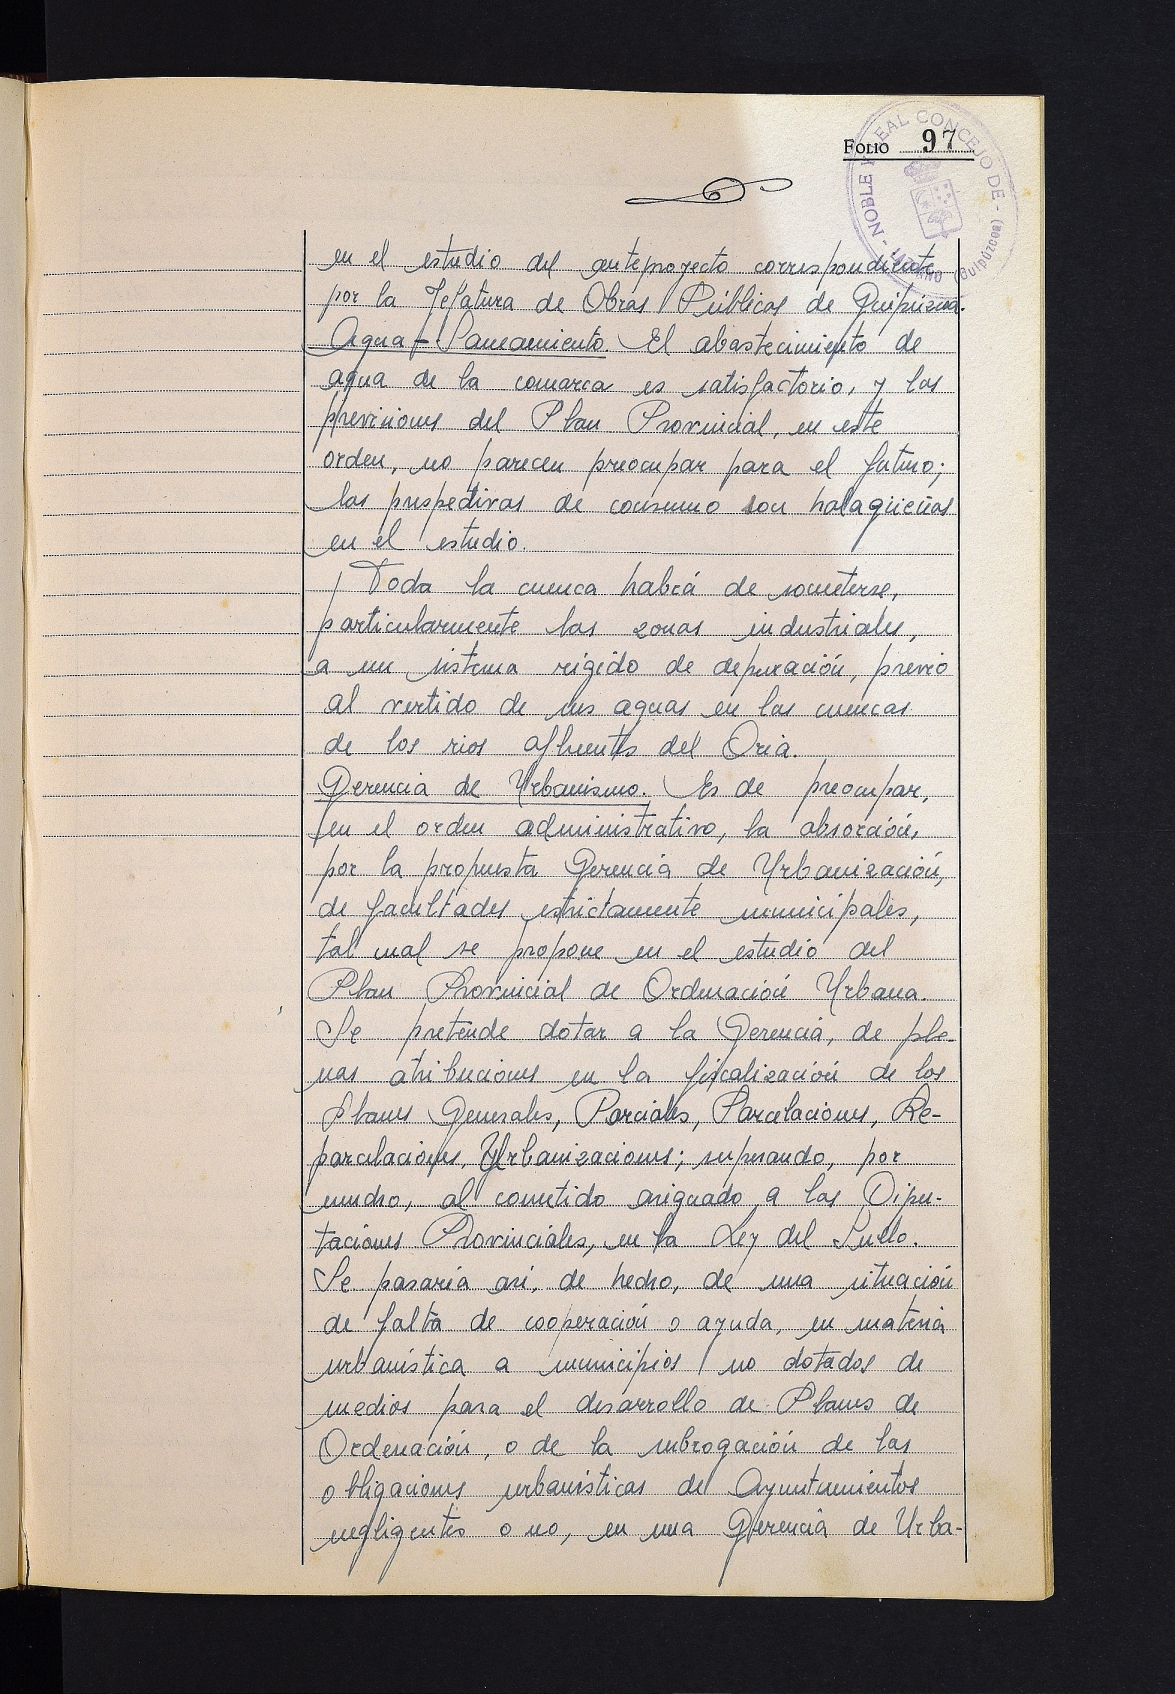 FOLIO 97
NOBLE Y LEAL CONCEJO DE - LAZCANO (Guipúzcoa) -
en el estudio del anteproyecto correspondiente
por la Jefatura de Obras Públicas de Guipúzcoa.
Agua - Saneamiento. El abastecimiento de
agua de la comarca es satisfactorio, y las
previsiones del Plan Provincial, en este
orden, no parecen preocupar para el futuro;
las puspectivas de consumo son halagüeñas
en el estudio.
Toda la cuenca habrá de someterse,
particularmente las zonas industriales,
a un sistema rígido de depuración, previo
al vertido de sus aguas en las cuencas
de los rios afluentes del Oria.
Gerencia de Urbanismo. Es de preocupar,
en el orden administrativo, la absorción,
por la propuesta Gerencia de Urbanización,
de facultades estrictamente municipales,
tal cual se propone en el estudio del
Plan Provincial de Ordenación Urbana.
Se pretende dotar a la Gerencia, de ple-
nas atribuciones en la fiscalización de los
Planes Generales, Parciales, Parcelaciones, Re-
parcelaciones, Urbanizaciones; superando, por
mucho, al cometido asignado a las Dipu-
taciones Provinciales, en la Ley del Suelo.
Se pasaría así, de hecho, de una situación
de falta de cooperación o ayuda, en materia
urbanística a municipios no dotados de
medios para el desarrollo de Planes de
Ordenación, o de la subrogación de las
obligaciones urbanísticas de Ayuntamientos
negligentes o no, en una Gerencia de Urba-